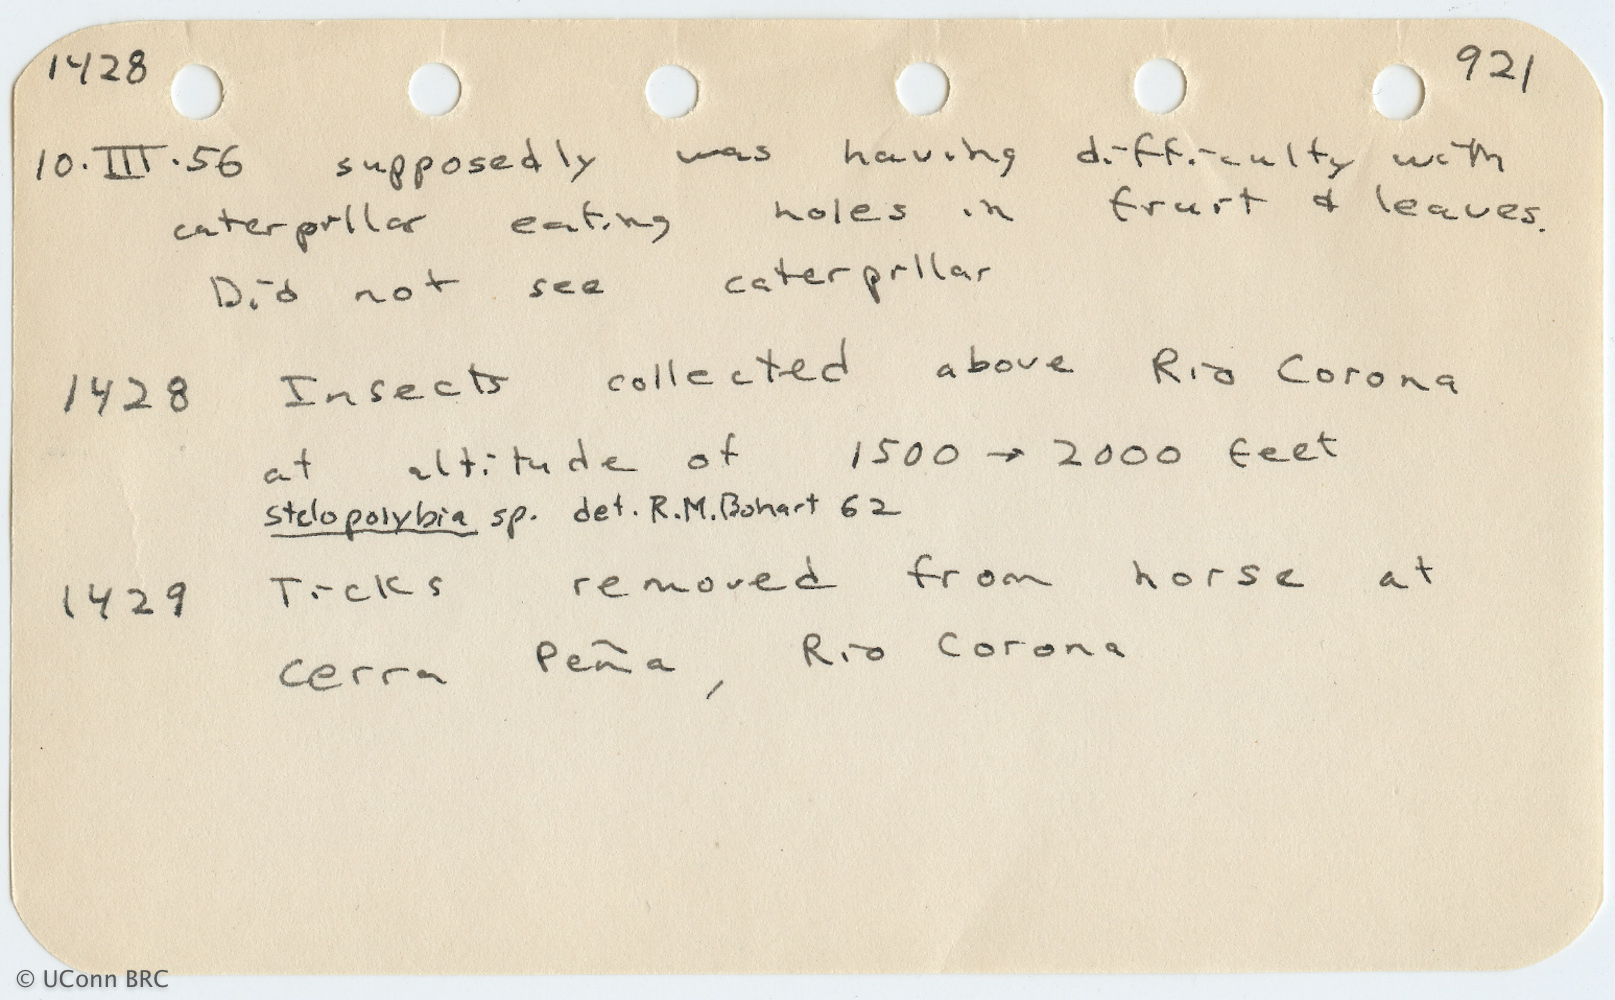 1428 921
10.III.56 supposedly was having difficulty with
caterpillar eating holes in fruit & leaves.
Did not see caterpillar
1428 Insects collected above Rio Corona
at altitude of 1500 → 2000 feet
Stelopolybia sp. det. R.M.Bohart 62
1429 Ticks removed from horse at
Cerra Peña, Rio Corona
© UConn BRC